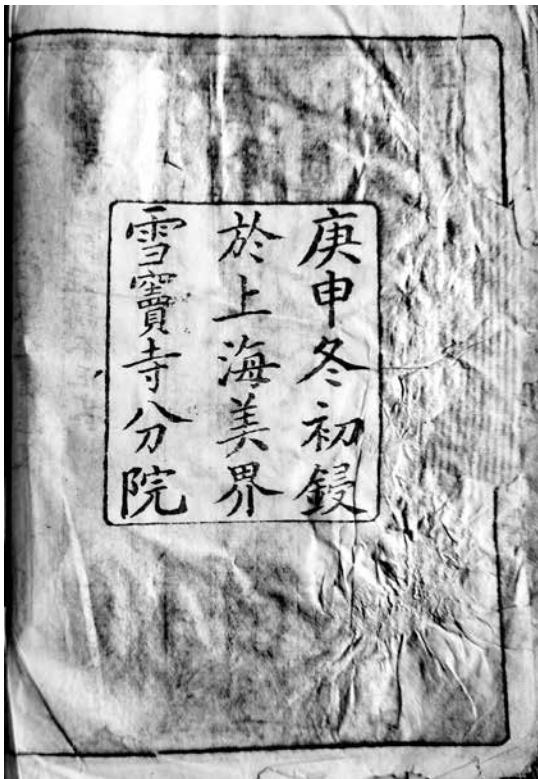 庚申冬初鋟
於上海美界
雪竇寺分院